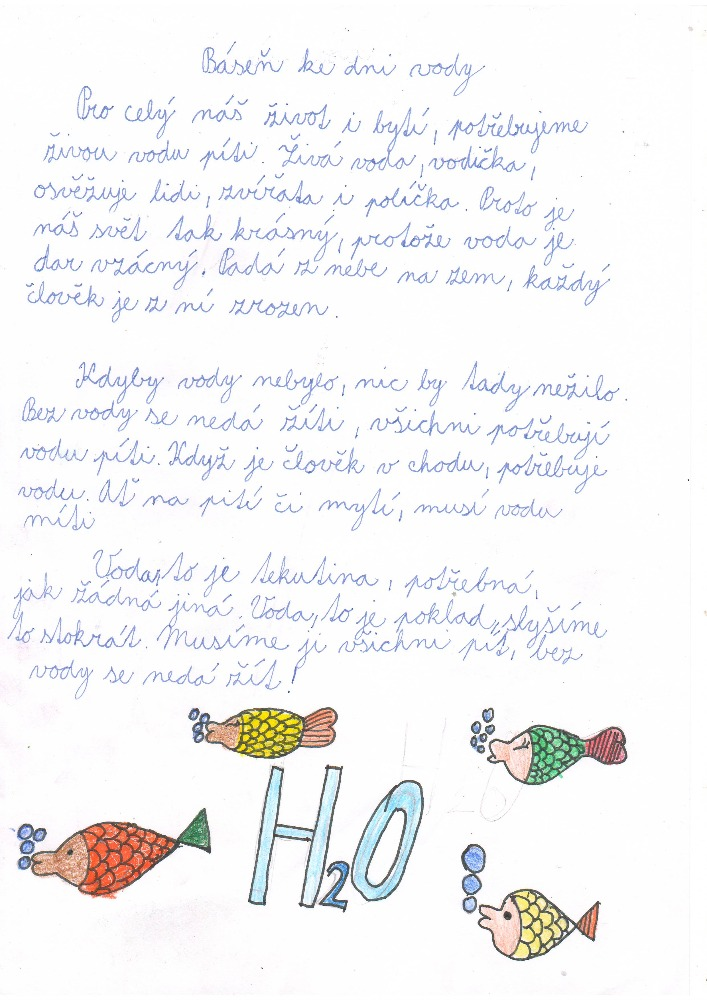 Báseň ke dni vody
Pro celý náš život i bytí, potřebujeme
živou vodu píti. Živá voda, vodička,
osvěžuje lidi, zvířata i políčka. Proto je
náš svět tak krásný, protože voda je
dar vzácný. Padá z nebe na zem, každý
člověk je z ní zrozen.
Kdyby vody nebylo, nic by tady nežilo.
Bez vody se nedá žíti, všichni potřebují
vodu píti. Když je člověk v chodu, potřebuje
vodu. Ať na pití či mytí, musí vodu
míti
Voda, to je tekutina, potřebná,
jak žádná jiná. Voda, to je poklad, slyšíme
to stokrát. Musíme ji všichni pít, bez
vody se nedá žít!
H2O
H2O